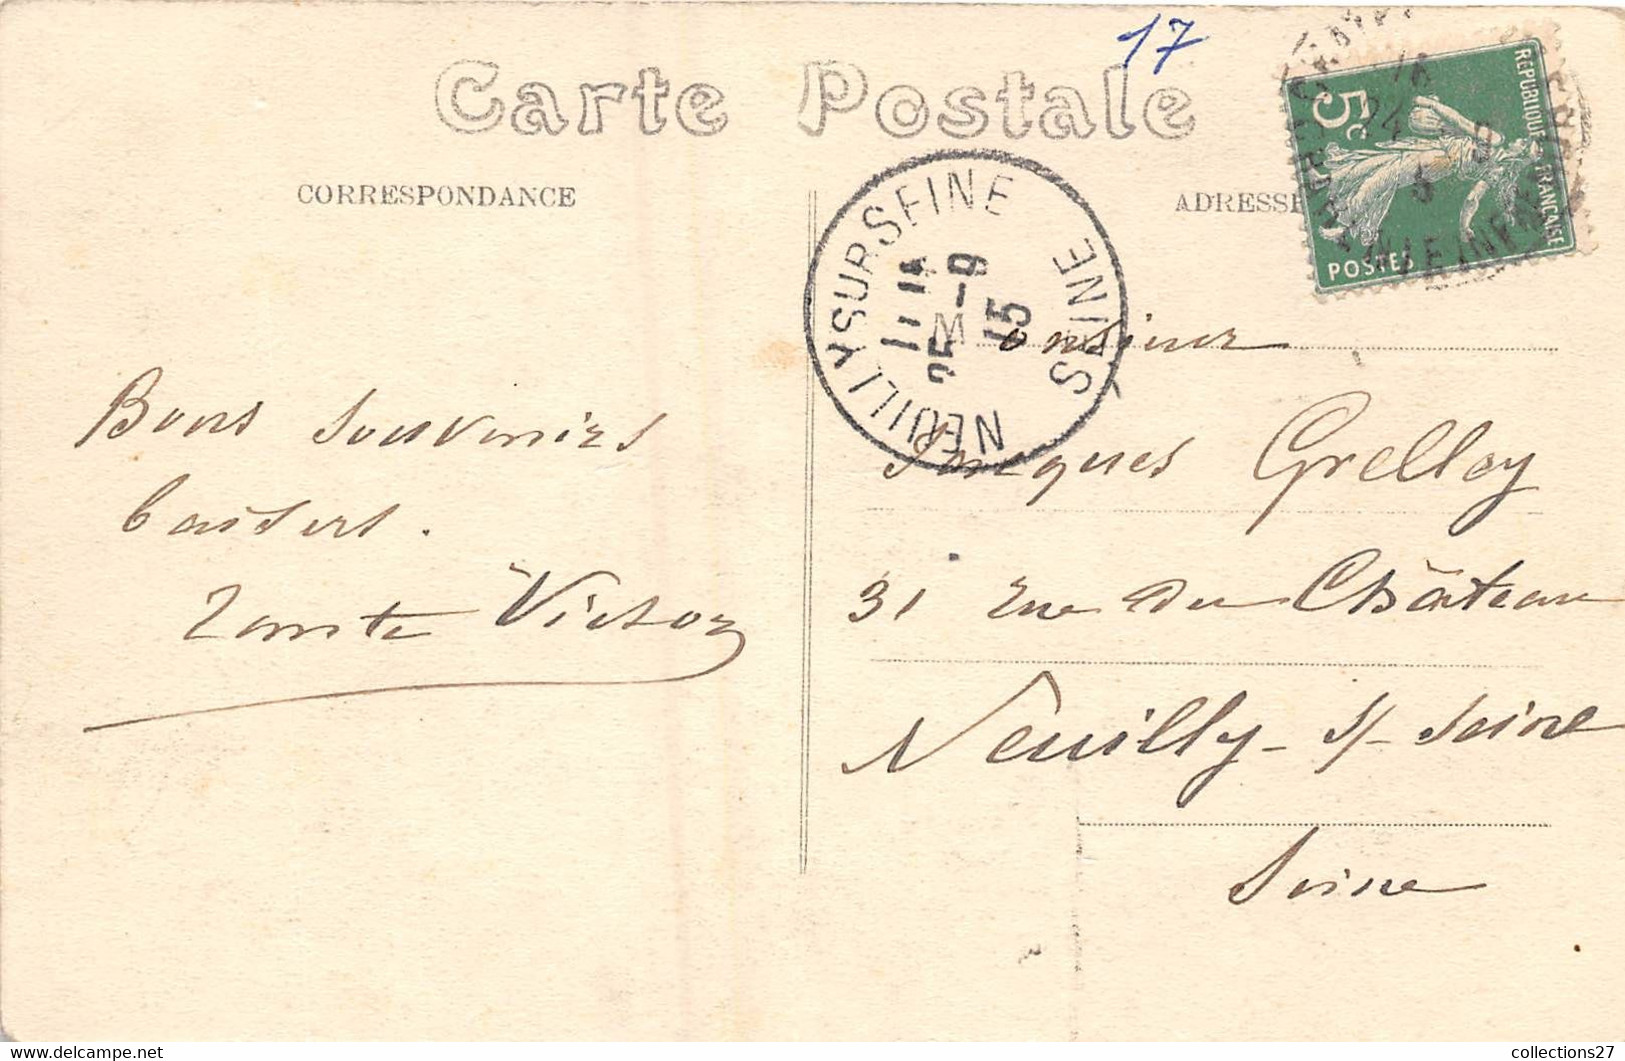 17
Carte Postale
CORRESPONDANCE
ADRESSE
REPUBLIQUE FRANÇAISE
5c
POSTES
NEUILLY SUR SEINE
SEINE
11 14
25 -9
15
Monsieur
Jacques Grellay
31 rue du Château
Neuilly - s/- Seine
Seine
Bons souvenirs
baisers.
Tante Victor
collections27